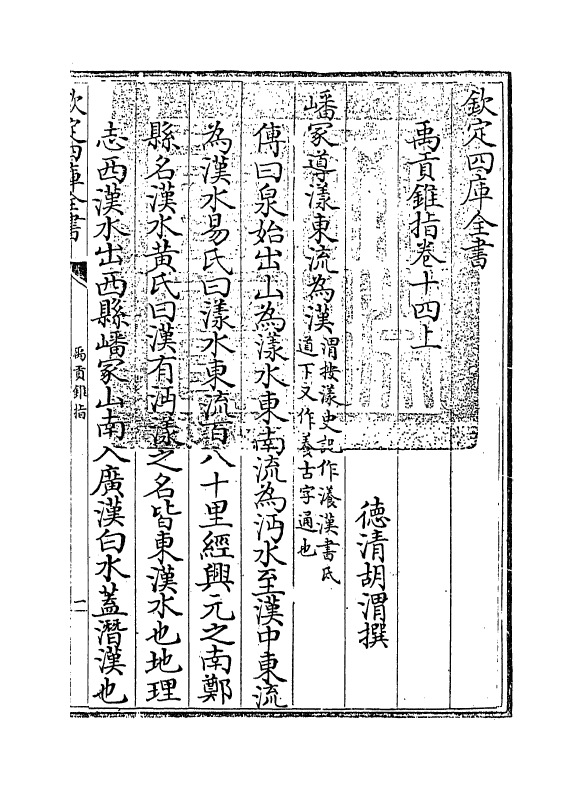 欽定四庫全書
禹貢錐指卷十四上
德清胡渭撰
嶓冢導漾東流為漢渭按漾史記作瀁漢書氐
道下又作養古字通也
傳曰泉始出山為漾水東南流為沔水至漢中東流
為漢水易氏曰漾水東流百八十里經興元之南鄭
縣名漢水黃氏曰漢有沔漾之名皆東漢水也地理
志西漢水出西縣嶓冢山南入廣漢白水蓋潛漢也
欽定四庫全書
禹貢錐指
一